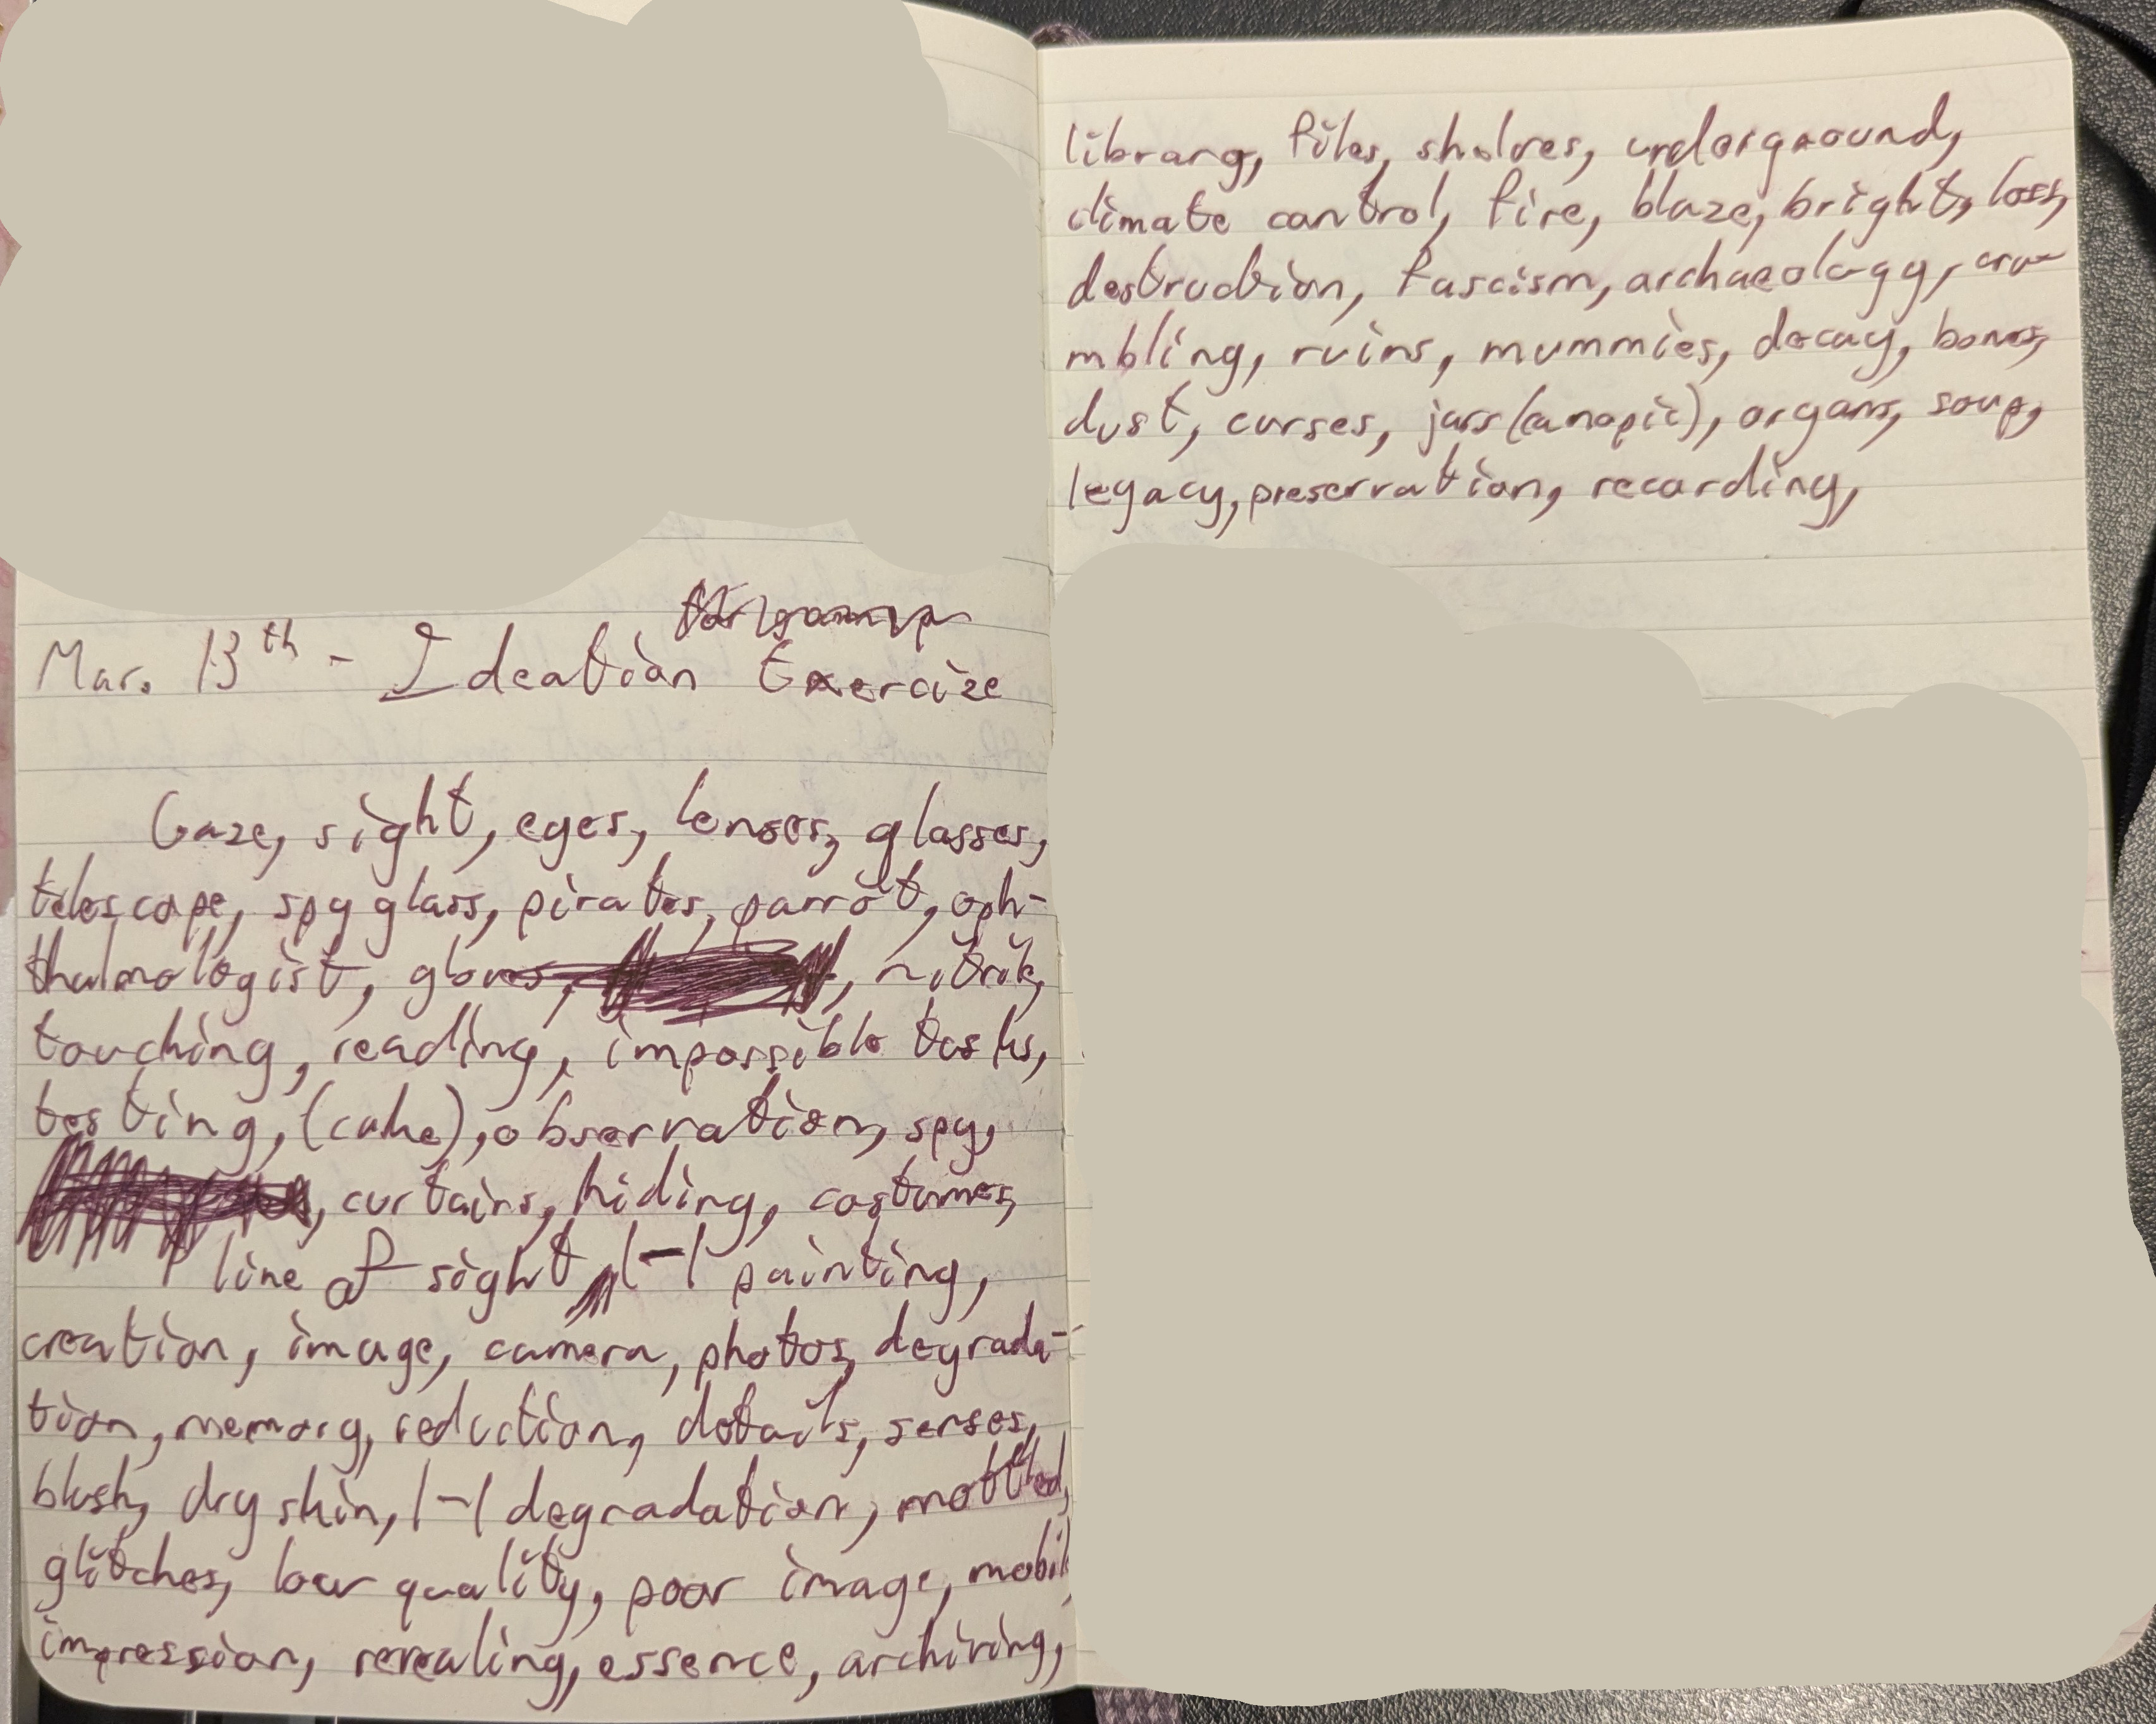 Mar. 13th - Ideation Exercize
Gaze, sight, eyes, lenses, glasses,
telescope, spy glass, pirates, parrot, oph-
thalmologist, gloves, , nitrile,
touching, reading, impossible tasks,
testing, (cake), observation, spy,
, curtains, hiding, costumes,
line of sight, |-| painting,
creation, image, camera, photos, degrada-
tion, memory, reduction, details, senses,
blush, dry skin, |-| degradation, mottled,
glitches, low quality, poor image, mobil
impression, revealing, essence, archiving,
library, files, shelves, underground,
climate control, fire, blaze, bright, loss,
destruction, fascism, archaeology, cru-
mbling, ruins, mummies, decay, bones,
dust, curses, jars (canopic), organs, soup,
legacy, preservation, recording,